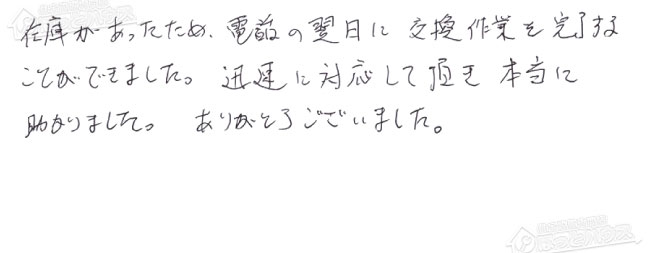 在庫があったため、電話の翌日に交換作業を完了する
ことができました。迅速に対応して頂き本当に
助かりました。ありがとうございました。